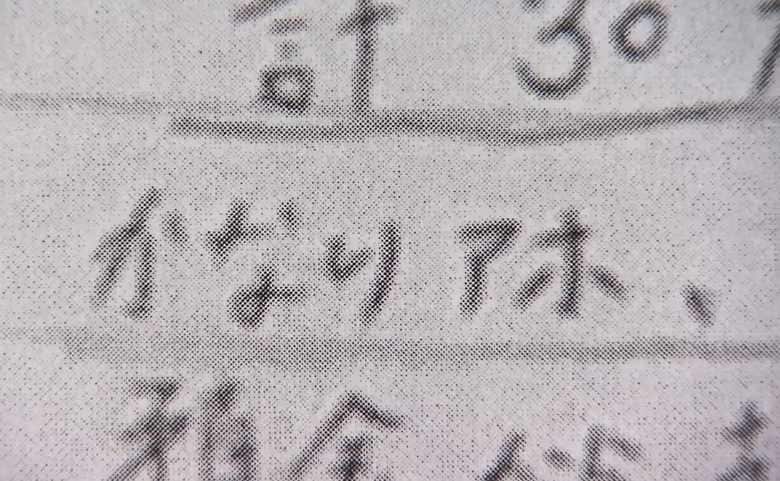 計 30
かなりアホ、
預金